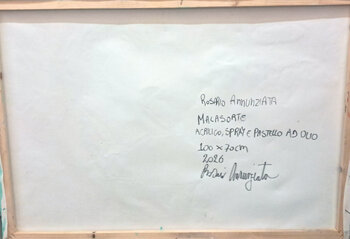 ROSARIO ANNUNZIATA
MALASORTE
ACRILICO, SPRAY E PASTELLO AD OLIO
100 x 70 cm
2026
Rosario Annunziata